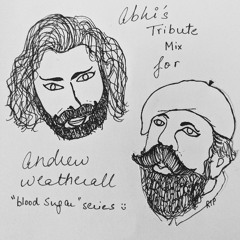 Abhi's
Tribute
Mix
for
Andrew
Weatherall
"blood sugar" series :)
RIP